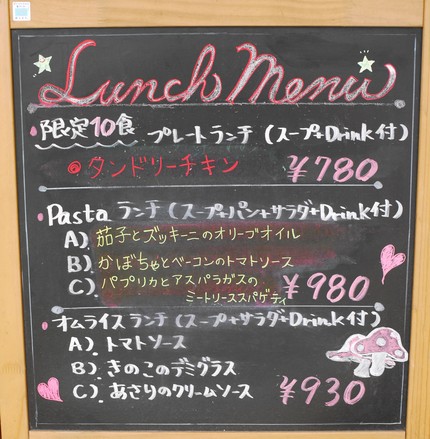 Lunch Menu
限定10食 プレートランチ (スープ+Drink付)
タンドリーチキン ¥780
Pasta ランチ (スープ+パン+サラダ+Drink付)
A) 茄子とズッキーニのオリーブオイル
B) かぼちゃとベーコンのトマトソース
C) パプリカとアスパラガスの
ミートリーススパゲティ ¥980
オムライスランチ (スープ+サラダ+Drink付)
A) トマトソース
B) きのこのデミグラス
C) あさりのクリームソース ¥930